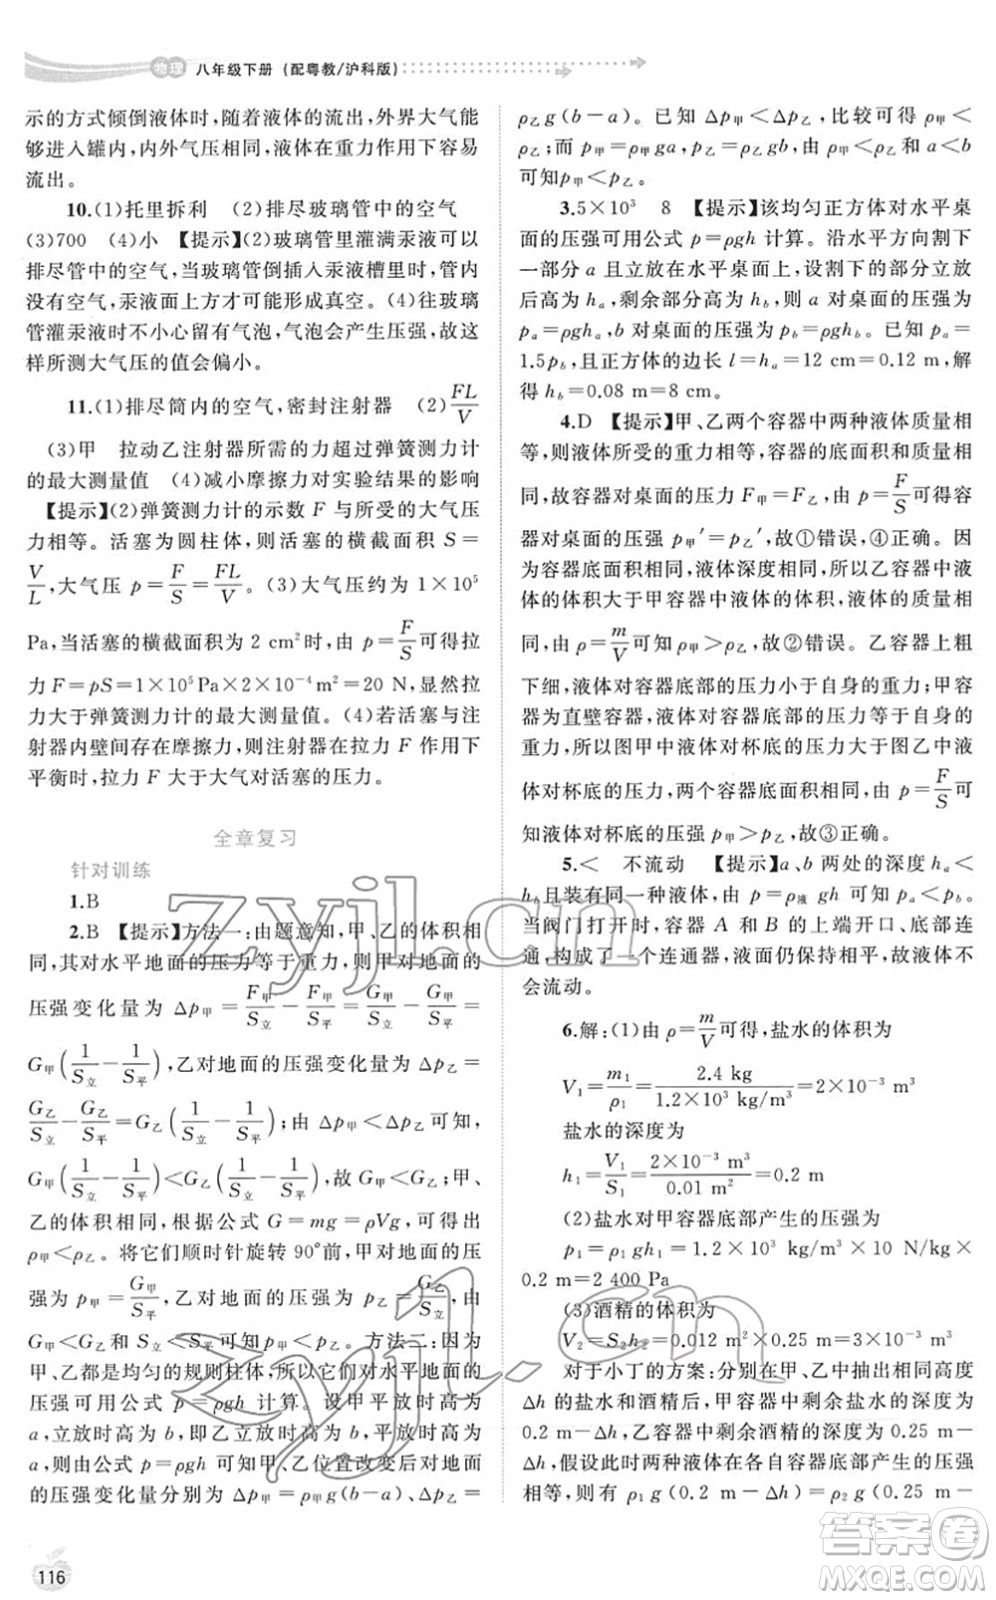 物理 八年级下册 (配粤教/沪科版)
示的方式倾倒液体时,随着液体的流出,外界大气能
够进入罐内,内外气压相同,液体在重力作用下容易
流出。
10.(1)托里拆利 (2)排尽玻璃管中的空气
(3)700 (4)小 【提示】(2)玻璃管里灌满汞液可以
排尽管中的空气,当玻璃管倒插入汞液槽里时,管内
没有空气,汞液上方才可能是真空。(4)往玻璃
管灌汞液时不小心留有气泡,气泡会产生压强,故这
样所测大气压的值会偏小。
11.(1)排尽筒内的空气,密封注射器 (2)FL/V
(3)甲 拉动乙注射器所需的力超过弹簧测力计
的最大测量值 (4)减小摩擦力对实验结果的影响
【提示】(2)弹簧测力计的示数 F 与所受的大气压
力相等。活塞为圆柱体,则活塞的横截面积 S=
V/L,大气压 p=F/S=FL/V。(3)大气压约为 1×10⁵
Pa,当活塞的横截面积为 2 cm²时,由 p=F/S可得拉
力 F=pS=1×10⁵Pa×2×10⁻⁴m²=20 N,显然拉
力大于弹簧测力计的最大测量值。(4)若活塞与注
射器内壁间存在摩擦力,则注射器在拉力 F 作用下
平衡时,拉力 F 大于大气对活塞的压力。
全章复习
针对训练
1.B
2.B 【提示】方法一:由题意知,甲、乙的体积相
同,其对水平地面的压力等于重力,则甲对水平地面的
压强变化量为 Δp甲=F甲/S立-F甲/S平=G甲/S立-G甲/S平=
G甲(1/S立-1/S平),乙对地面的压强变化量为 Δp乙=
G乙/S立-G乙/S平=G乙(1/S立-1/S平);由 Δp甲<Δp乙可知,
G甲(1/S立-1/S平)<G乙(1/S立-1/S平),故 G甲<G乙;甲、
乙的体积相同,根据公式 G=mg=ρVg,可得
ρ甲<ρ乙。将它们顺时针旋转 90°前,甲对地面的压
强为 p甲=G甲/S平,乙对地面的压强为 p乙=G乙/S立,由
G甲<G乙和 S立<S平可知 p甲<p乙。方法二:因为
甲、乙都是均匀的规则柱体,所以其对水平地面的压
强可使用公式 p=ρgh 计算。设甲平放时高为
a,立放时高为 b,即乙立放时高为 b,平放时高为
a,则由公式 p=ρgh 可得甲、乙改变前后对地面
的压强变化量分别为 Δp甲=ρ甲g(b-a)、Δp乙=
116
ρ乙g(b-a)。已知 Δp甲<Δp乙,比较可得 ρ甲<
ρ乙;而 p甲=ρ甲ga,p乙=ρ乙gb,由 ρ甲<ρ乙和 a<b
可知p甲<p乙。
3.5×10³ 8 【提示】该均匀正方体对水平桌
面的压强可用公式 p=ρgh 计算。沿水平方向割下
一部分 a 且立放在水平桌面上,设割下的部分立放
后高为 hₐ,剩余部分高为 h_b,则 a 对桌面的压强为
pₐ=ρghₐ,b 对桌面的压强为 p_b=ρgh_b。已知 pₐ=
1.5p_b,且正方体的边长 l=hₐ=12 cm=0.12 m,解
得 h_b=0.08 m=8 cm。
4.D 【提示】甲、乙两个容器中两种液体质量相
等,则液体所受的重力相等,容器的底面积和质量相
同,故容器对桌面的压力 F甲=F乙,由 p=F/S可得容
器对桌面的压强 p甲′=p乙′,故①错误,④正确。因
为容器底面积相同,液体深度相同,所以乙容器中液
体的体积大于甲容器中液体的体积,液体的质量相
同,由 ρ=m/V可知 ρ甲>ρ乙,故②错误。乙容器上粗
下细,液体对容器底部的压力小于自身的重力;甲容
器为直壁容器,液体对容器底部的压力等于自身的
重力,所以图甲中液体对杯底的压力大于图乙中液
体对杯底的压力,两容器底面积相同,由 p=F/S可
知液体对杯底的压强 p甲>p乙,故③正确。
5.< 不流动 【提示】a、b 两处的深度 hₐ<
h_b且装有同一种液体,由 p=ρ液 gh 可知 pₐ<p_b。
当阀门打开时,容器 A 和 B 的上端开口、底部连
通,构成了一个连通器,液面仍保持相平,故液体不
会流动。
6.解:(1)由 ρ=m/V可得,盐水的体积为
V₁=m₁/ρ₁=2.4 kg/1.2×10³ kg/m³=2×10⁻³ m³
盐水的深度为
h₁=V₁/S₁=2×10⁻³ m³/0.01 m²=0.2 m
(2)盐水对甲容器底部产生的压强为
p₁=ρ₁gh₁=1.2×10³ kg/m³×10 N/kg×
0.2 m=2 400 Pa
(3)酒精的体积为
V₂=S₂h₂=0.012 m²×0.25 m=3×10⁻³ m³
对于小丁的方案:分别在甲、乙中抽出相同高度
Δh 的盐水和酒精,甲容器中剩余盐水的深度为
0.2 m-Δh,乙容器中剩余酒精的深度为0.25 m-
Δh,假设此时两种液体在各自容器底部产生的压强
相等,则有 ρ₁g(0.2 m-Δh)=ρ₂g(0.25 m-
zyjl.cn
zyjl.cn
答案圈
MXQE.COM